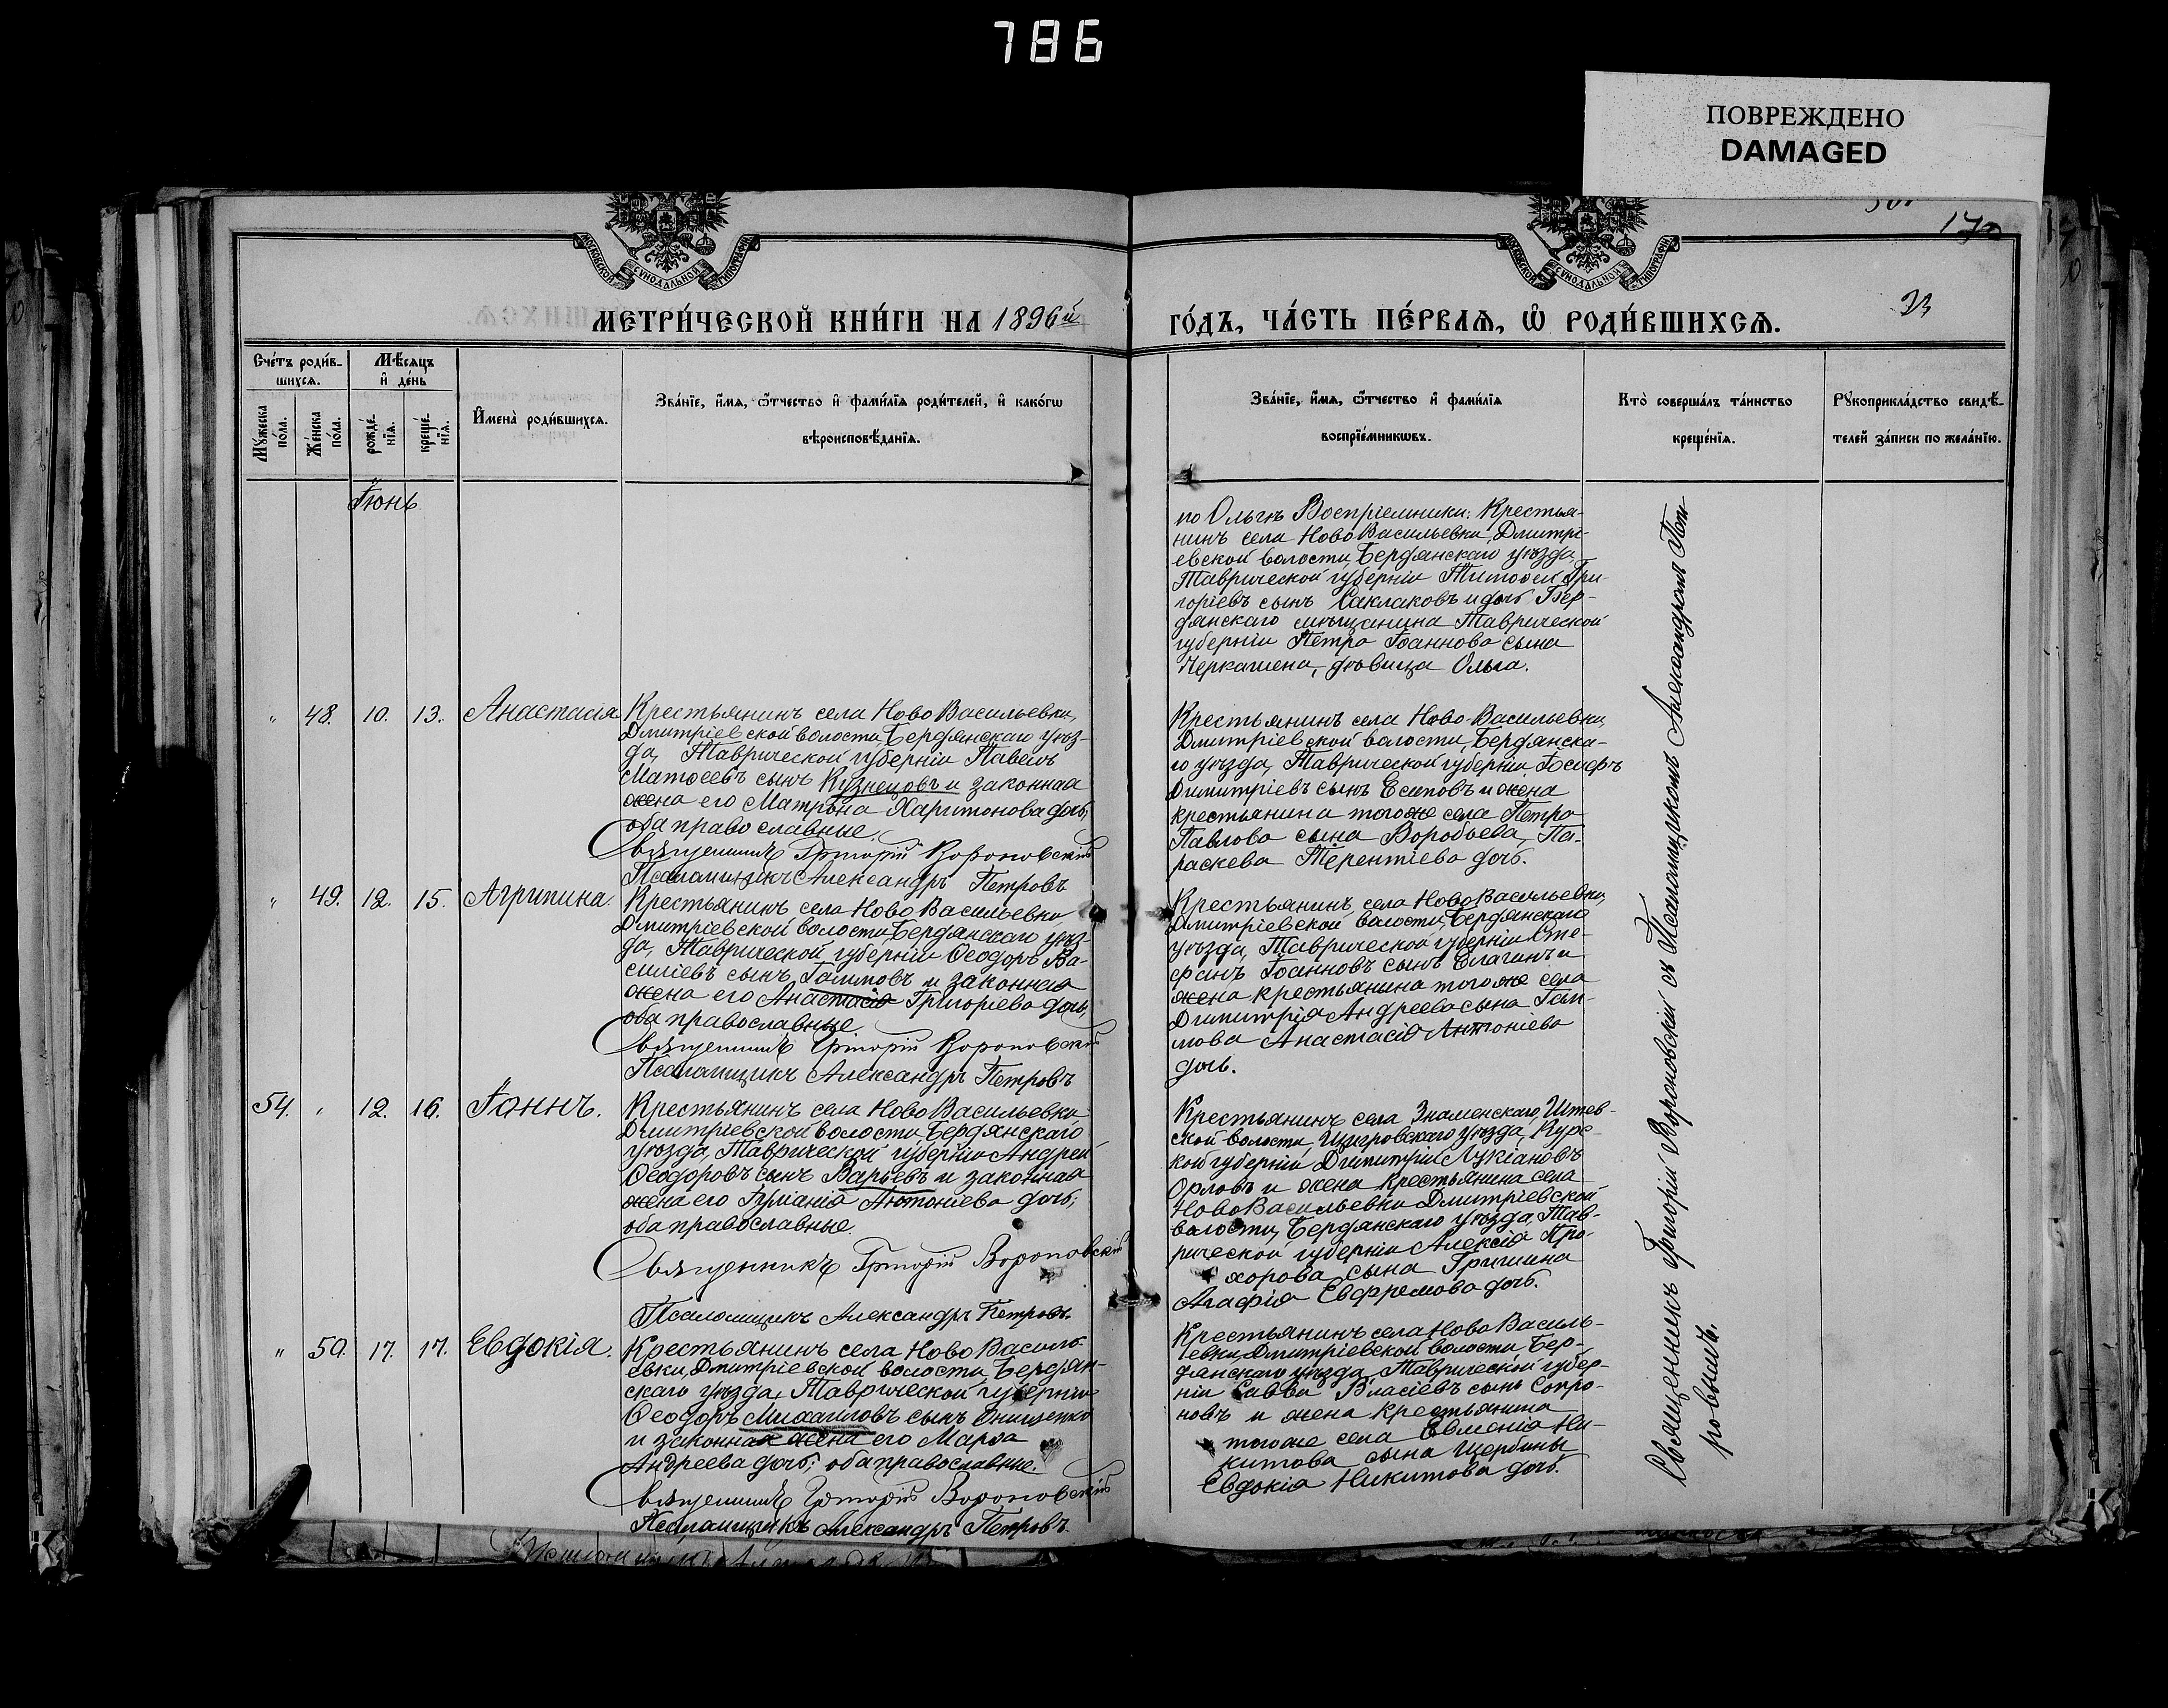 786
ПОВРЕЖДЕНО
DAMAGED
МОСКОВСКОЙ СУНОДАЛЬНОЙ ТИПОГРАФІИ
МОСКОВСКОЙ СУНОДАЛЬНОЙ ТИПОГРАФІИ
МЕТРИ́ЧЕСКОЙ КНИ́ГИ НА 1896й
ГО́ДЪ, ЧА́СТЬ ПЕ́РВАѦ, Ѡ҆ РОДИ́ВШИХСѦ.
Сче́тъ роди́в-
шихсѧ.
Мѣ́сѧцъ
и҆ де́нь
Мꙋ́жеска по́ла.
Же́нска по́ла.
рожде́-
нїѧ.
креще́-
нїѧ.
И҆мена̀ роди́вшихсѧ.
Зва́нїе, и҆́мѧ, ѻ҆́тчество и҆ фами́лїѧ роди́телей, и҆ како́гѡ
вѣроисповѣ́данїѧ.
Зва́нїе, и҆́мѧ, ѻ҆́тчество и҆ фами́лїѧ
воспрїе́мникѡвъ.
Кто̀ соверша́лъ та́инство
креще́нїѧ.
Рꙋкоприкла́дство свидѣ́-
телей за́писи по жела́нїю.
Іюнь
по Ольгѣ Воспріемники: Крестья-
нинъ села Ново Васильевки, Дмитрі-
евской волости, Бердянскаго уѣзда
Таврической губерніи Тимофей Гри-
горіевъ сынъ Саклаковъ и дочь Бер-
дянскаго мѣщанина Таврической
губерніи Петра Іоаннова сына
Черкашена, дѣвица Ольга.
" 48. 10. 13. Анастасія
Крестьянинъ села Ново Васильевки,
Дмитріевской волости, Бердянскаго уѣз-
да, Таврической губерніи Павелъ
Матѳеевъ сынъ Кузнецовъ и законная
жена его Матрона Харитонова дочь,
оба православные.
Священникъ Григорій Вороновскій
Псаломщикъ Александръ Петровъ
Крестьянинъ села Ново-Васильевки,
Дмитріевской волости, Бердянска-
го уѣзда, Таврической губерніи Іосифъ
Димитріевъ сынъ Есиповъ и жена
крестьянина того же села Петра
Павлова сына Воробьева, Па-
раскева Терентіева дочь.
" 49. 12. 15. Агрипина.
Крестьянинъ села Ново Васильевки
Дмитріевской волости, Бердянскаго уѣз-
да, Таврической губерніи Ѳеодоръ Ва-
силіевъ сынъ Галимовъ и законная
жена его Анастасія Григоріева дочь,
оба православные
Священникъ Григорій Вороновскій
Псаломщикъ Александръ Петровъ
Крестьянинъ села Ново Васильевки,
Дмитріевской волости, Бердянскаго
уѣзда, Таврической губерніи Сте-
фанъ Іоанновъ сынъ Елагинъ и
жена крестьянина того же села
Димитрія Андреева сына Гали-
мова Анастасія Антоніева
дочь.
54. " 12. 16. Іоаннъ.
Крестьянинъ села Ново Васильевки
Дмитріевской волости, Бердянскаго
уѣзда, Таврической губерніи Андрей
Ѳеодоровъ сынъ Варьевъ и законная
жена его Антоніева дочь;
оба православные.
Священникъ Григорій Вороновскій
Псаломщикъ Александръ Петровъ.
Крестьянинъ села Знаменскаго,
ской волости, Щигровскаго уѣзда, Курс-
кой губерніи Димитрій Лукіановъ
Орловъ и жена крестьянина села
Ново Васильевки Дмитріевской
волости, Бердянскаго уѣзда, Тав-
рической губерніи Алексія Про-
хорова сына Гришина
Агафія Евфремова дочь.
" 50. 17. 17. Евдокія.
Крестьянинъ села Ново Василь-
евки, Дмитріевской волости, Бердян-
скаго уѣзда, Таврической губерніи
Ѳеодоръ Михаиловъ сынъ Онищенко
и законная жена его Марѳа
Андреева дочь; оба православные.
Священникъ Григорій Вороновскій
Псаломщикъ Александръ Петровъ.
Крестьянинъ села Ново Василь-
евки, Дмитріевской волости, Бер-
дянскаго уѣзда, Таврической губер-
ніи Савва Власіевъ сынъ Сопро-
новъ и жена крестьянина
того же села Евменія Ни-
китова сына Щербины
Евдокія Никитова дочь.
Священникъ Григорій Вороновскій съ Псаломщикомъ Александромъ Пет-
ровымъ.